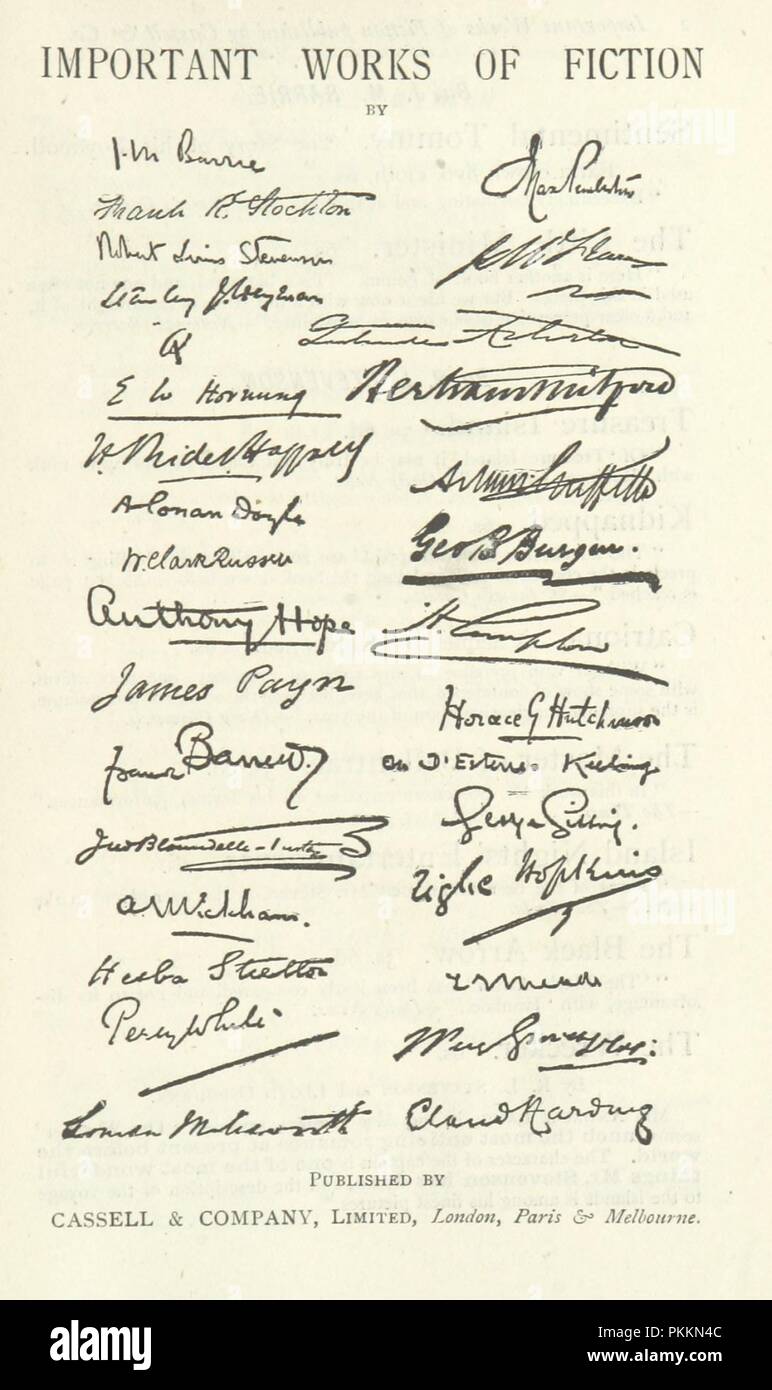 IMPORTANT WORKS OF FICTION
BY
J. M. Barrie
Max Pemberton
Frank R. Stockton
Robert Louis Stevenson
Stanley J. Weyman
Q
E W Hornung
Bertram Mitford
H. Rider Haggard
Arthur Griffiths
A Conan Doyle
Geo B Burgin.
W. Clark Russell
Anthony Hope
James Payn
Horace G Hutchinson
Frank Barrett
D'Esterre Keeling
George Gissing.
A. Wickham.
Tighe Hopkins
Hesba Stretton
L T Meade
Percy White
Molesworth
Claud Harding
PUBLISHED BY
CASSELL & COMPANY, LIMITED, London, Paris & Melbourne.
alamy
Image ID: PKKN4C
www.alamy.com